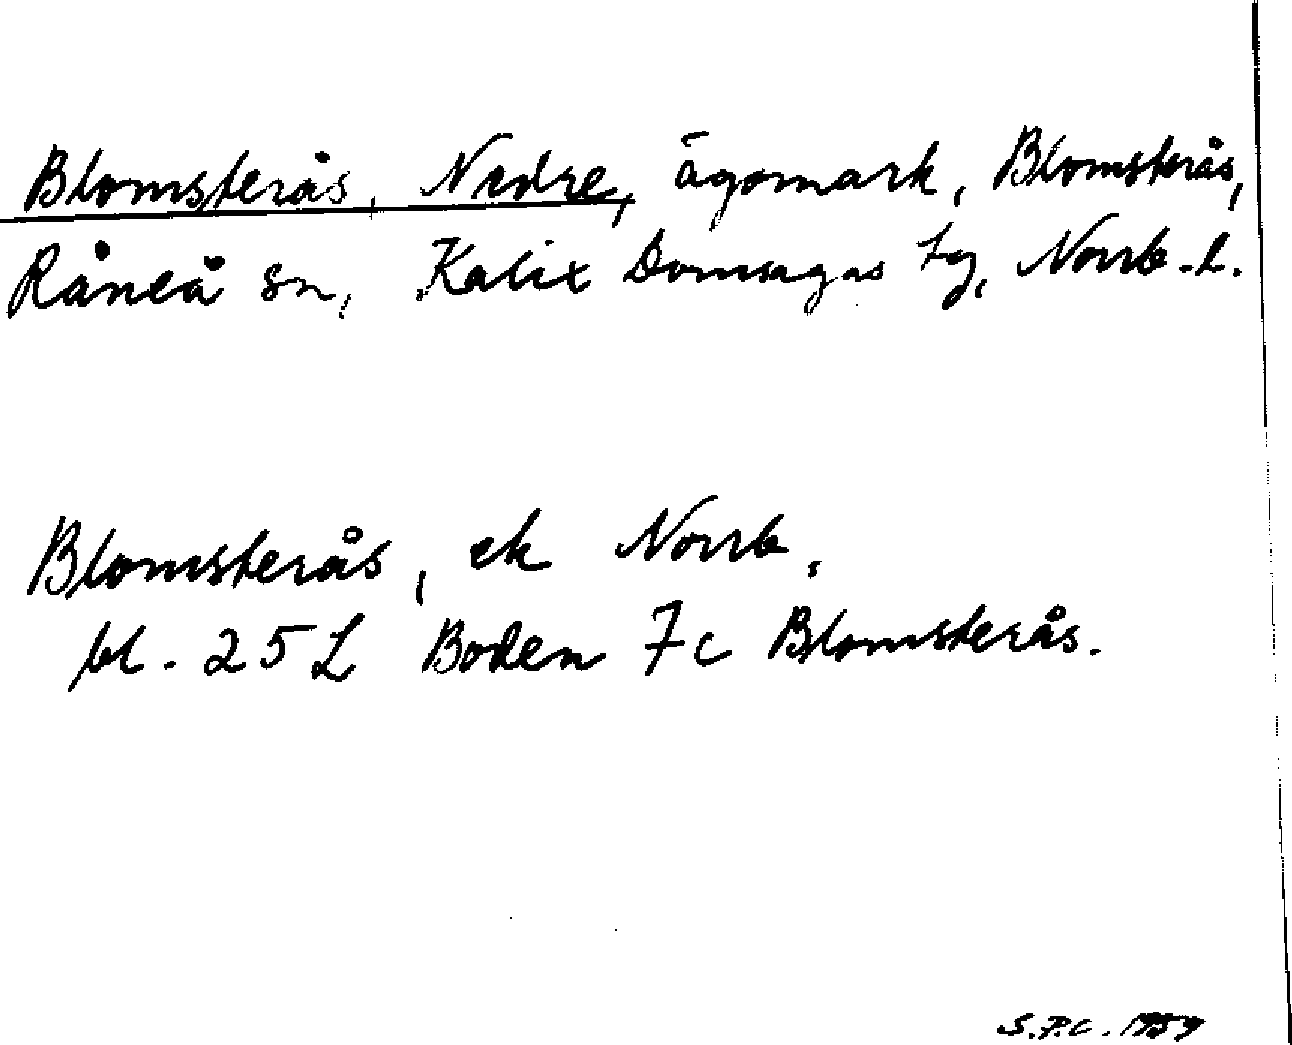 Blomsterås, Nedre, ägomark, Blomsterås,
Råneå sn, Kalix Domsagas tg, Norrb. L.
Blomsterås, ek Norrb.
bl. 25 L Boden 7c Blomsterås.
S.P.C. 1959